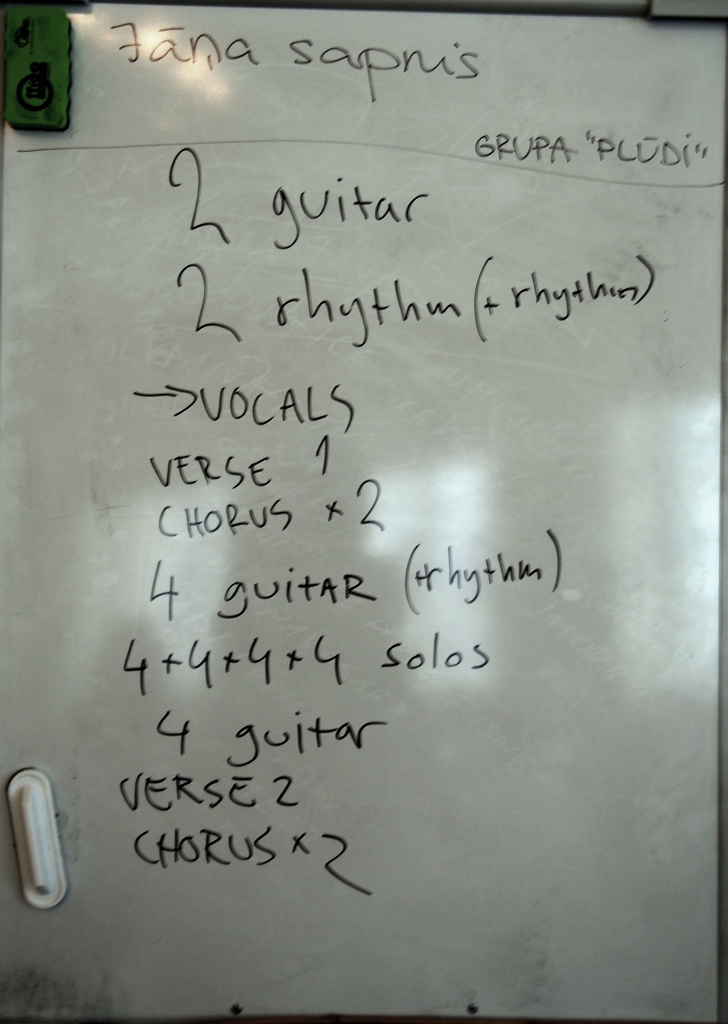 Jāņa sapnis
GRUPA "PLŪDI"
2 guitar
2 rhythm (+ rhythm)
→VOCALS
VERSE 1
CHORUS x 2
4 guitAR (+rhythm)
4+4+4+4 solos
4 guitar
VERSE 2
CHORUS x 2